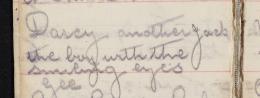 Darcy another Jack
the boy with the
smiling eyes
Gee